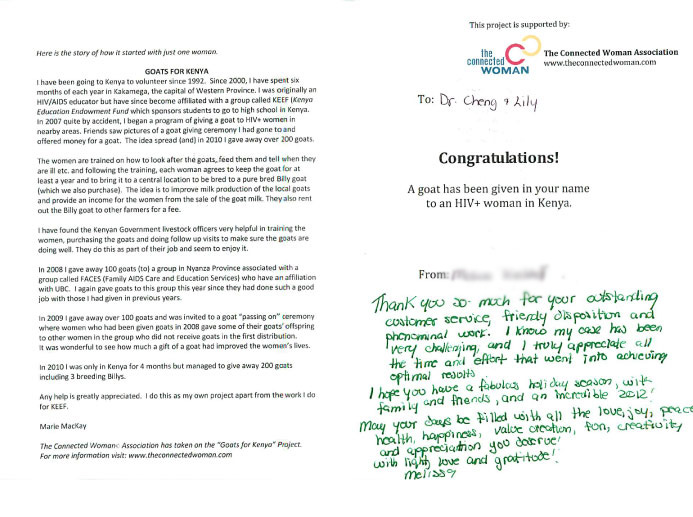 Here is the story of how it started with just one woman.
GOATS FOR KENYA
I have been going to Kenya to volunteer since 1992. Since 2000, I have spent six
months of each year in Kakamega, the capital of Western Province. I was originally an
HIV/AIDS educator but have since become affiliated with a group called KEEF (Kenya
Education Endowment Fund which sponsors students to go to high school in Kenya.
In 2007 quite by accident, I began a program of giving a goat to HIV+ women in
nearby areas. Friends saw pictures of a goat giving ceremony I had gone to and
offered money for a goat. The idea spread (and) in 2010 I gave away over 200 goats.
The women are trained on how to look after the goats, feed them and tell when they
are ill etc. and following the training, each woman agrees to keep the goat for at
least a year and to bring it to a central location to be bred to a pure bred Billy goat
(which we also purchase). The idea is to improve milk production of the local goats
and provide an income for the women from the sale of the goat milk. They also rent
out the Billy goat to other farmers for a fee.
I have found the Kenyan Government livestock officers very helpful in training the
women, purchasing the goats and doing follow up visits to make sure the goats are
doing well. They do this as part of their job and seem to enjoy it.
In 2008 I gave away 100 goats (to) a group in Nyanza Province associated with a
group called FACES (Family AIDS Care and Education Services) who have an affiliation
with UBC. I again gave goats to this group this year since they had done such a good
job with those I had given in previous years.
In 2009 I gave away over 100 goats and was invited to a goat "passing on" ceremony
where women who had been given goats in 2008 gave some of their goats' offspring
to other women in the group who did not receive goats in the first distribution.
It was wonderful to see how much a gift of a goat had improved the women's lives.
In 2010 I was only in Kenya for 4 months but managed to give away 200 goats
including 3 breeding Billys.
Any help is greatly appreciated. I do this as my own project apart from the work I do
for KEEF.
Marie MacKay
The Connected Woman© Association has taken on the "Goats for Kenya" Project.
For more information visit: www.theconnectedwoman.com
This project is supported by:
the connected WOMAN
The Connected Woman Association
www.theconnectedwoman.com
To: Dr. Cheng & Lily
Congratulations!
A goat has been given in your name
to an HIV+ woman in Kenya.
From:
Thank you so much for your outstanding
customer service, friendly disposition and
phenominal work. I know my case has been
very challenging, and I truly appreciate all
the time and effort that went into achieving
optimal results.
I hope you have a fabulous holiday season, with
family and friends, and an incredible 2012!
May your days be filled with all the love, joy, peace
health, happiness, value creation, fun, creativity
and appreciation you deserve!
with light, love and gratitude!
Melissa